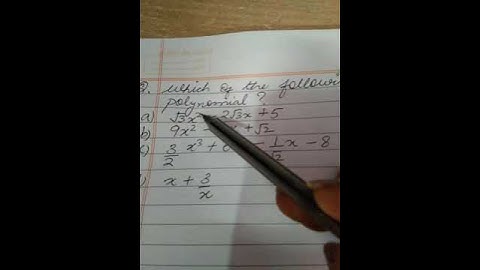 which of the following
polynomial ?
a) √3x² - 2√3x + 5
b) 9x² - + √2
c) 3/2 x³ + - 1/√2 x - 8
) x + 3/x